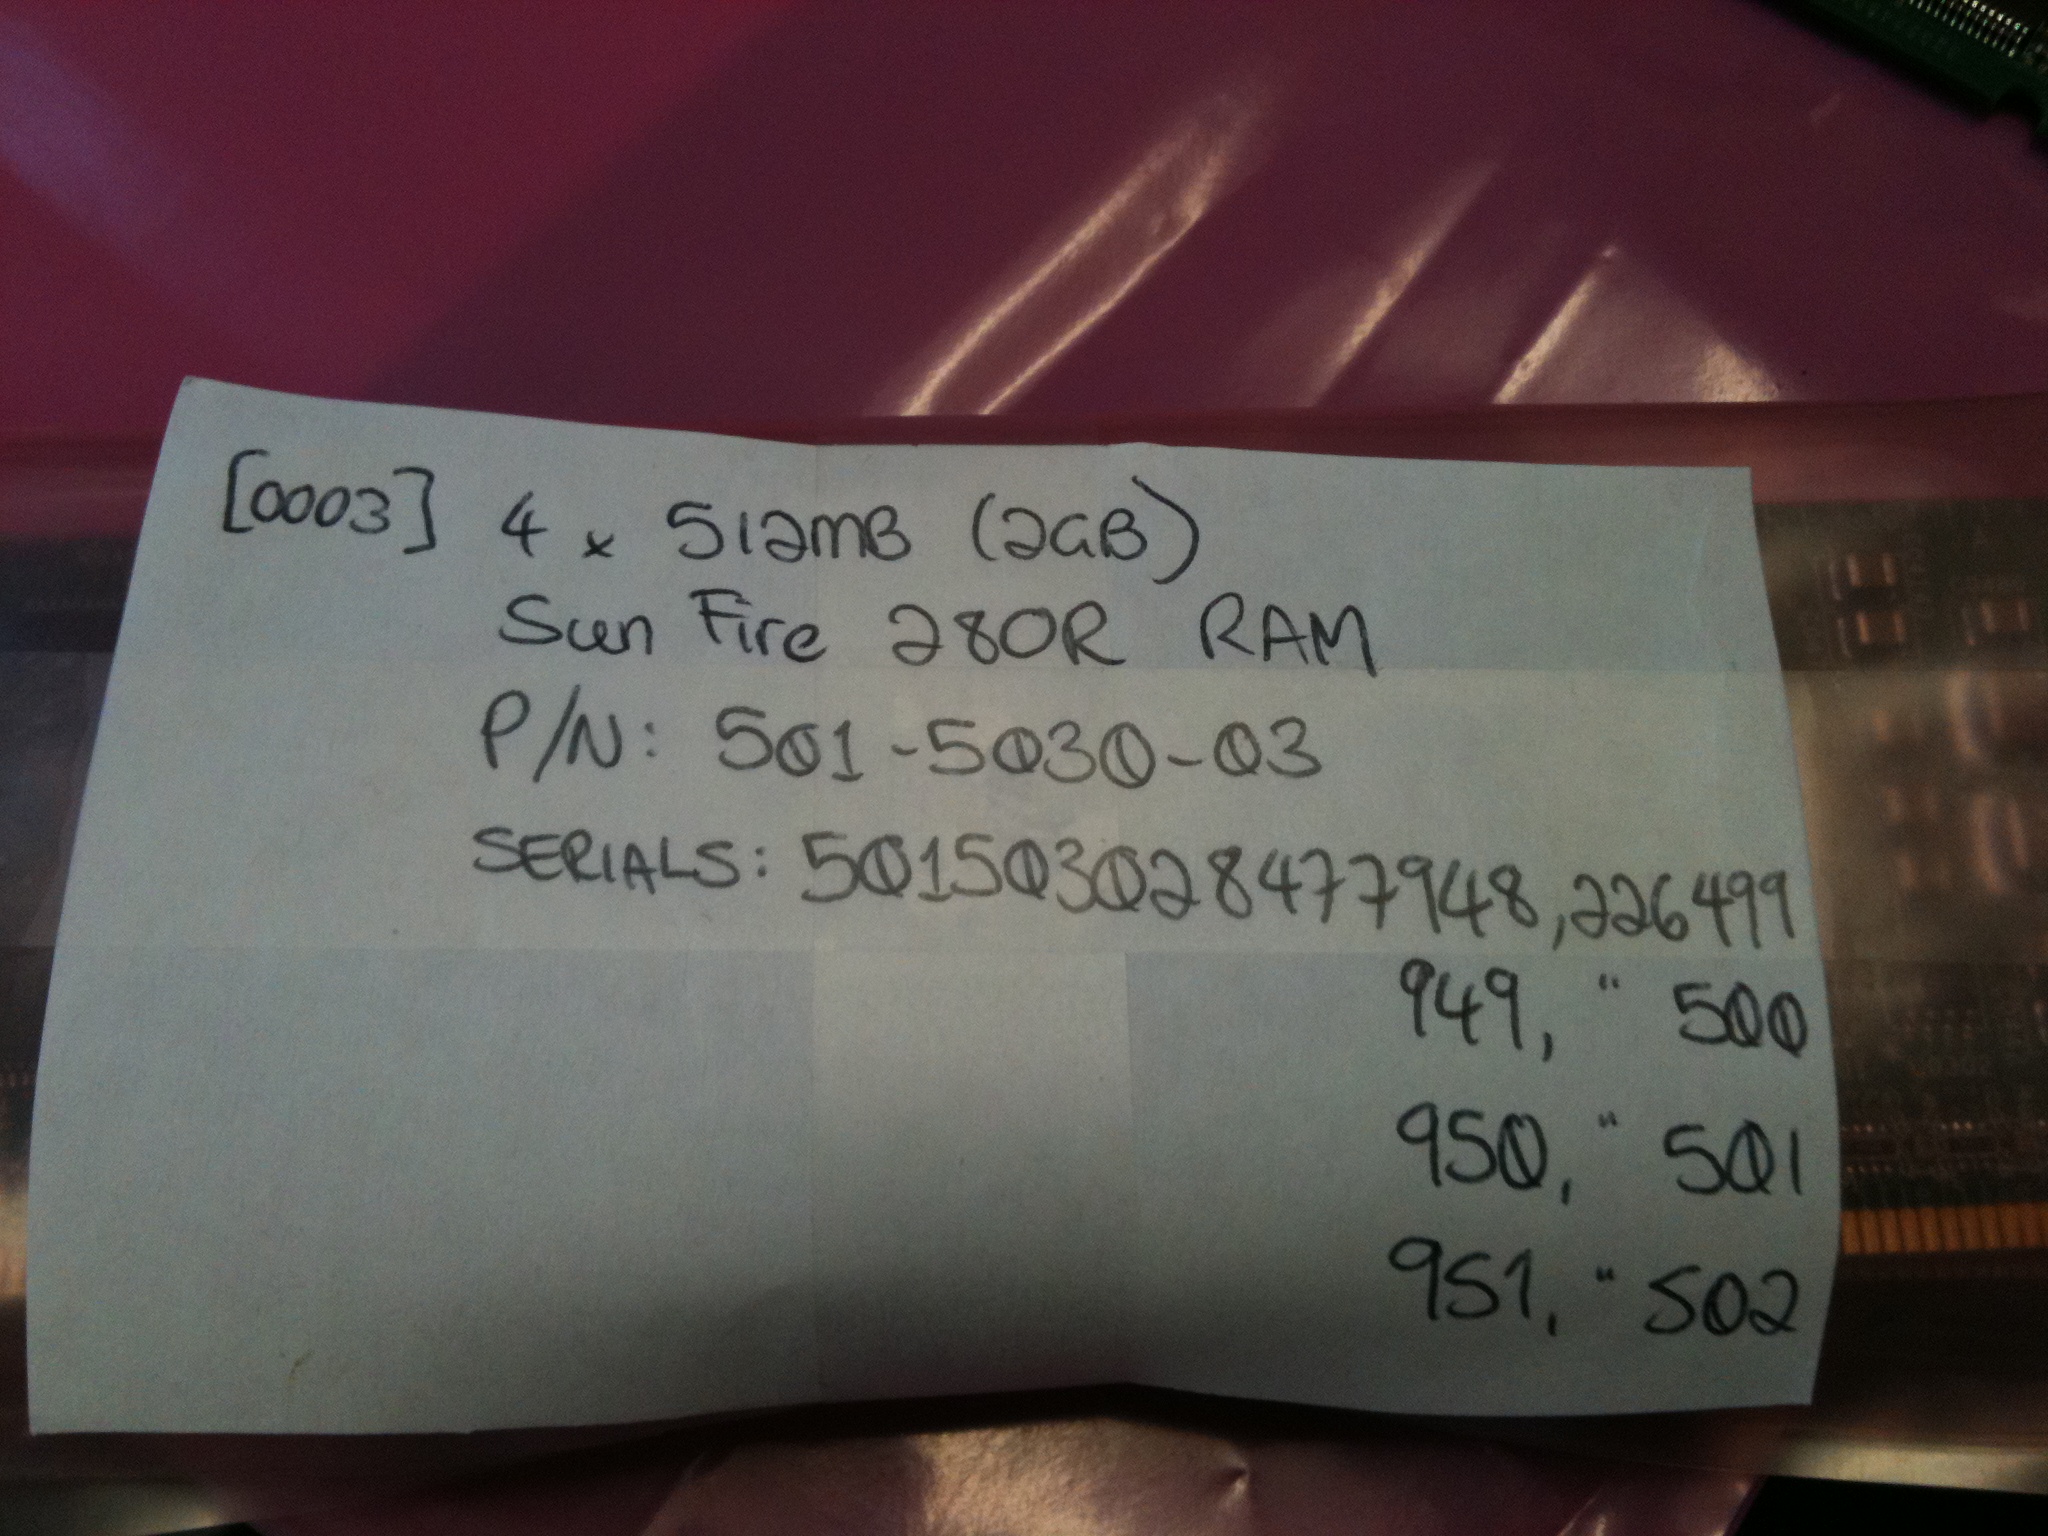 [0003] 4 x 512MB (2GB)
Sun Fire 280R RAM
P/N: 501-5030-03
SERIALS: 501503028477948,226499
949, " 500
950, " 501
951, " 502